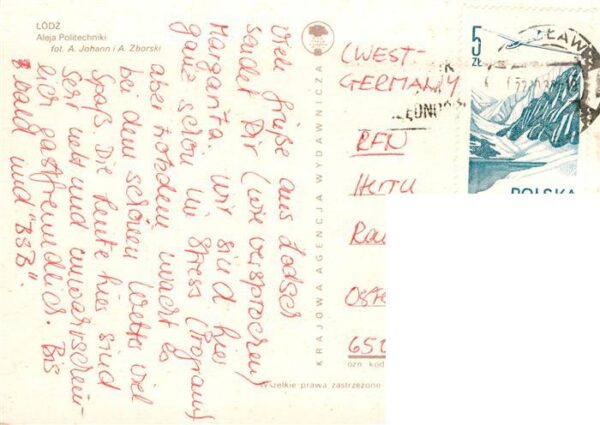 ŁÓDŹ
Aleja Politechniki
fot. A. Johann i A. Zborski
Viele Grüße aus Lodsch
sendet Dir (wie versprochen)
Margarita. Wir sind hier
ganz schön im Stress (Programm)
aber trotzdem macht es
bei dem schönen Wetter viel
Spaß. Die Leute hier sind
sehr nett und unwahrschein-
lich gastfreundlich. Bis
bald und "BSB".
KRAJOWA AGENCJA WYDAWNICZA
Wszelkie prawa zastrzeżone
(WEST-
GERMANY
RFN
652
5
ZŁ
POLSKA